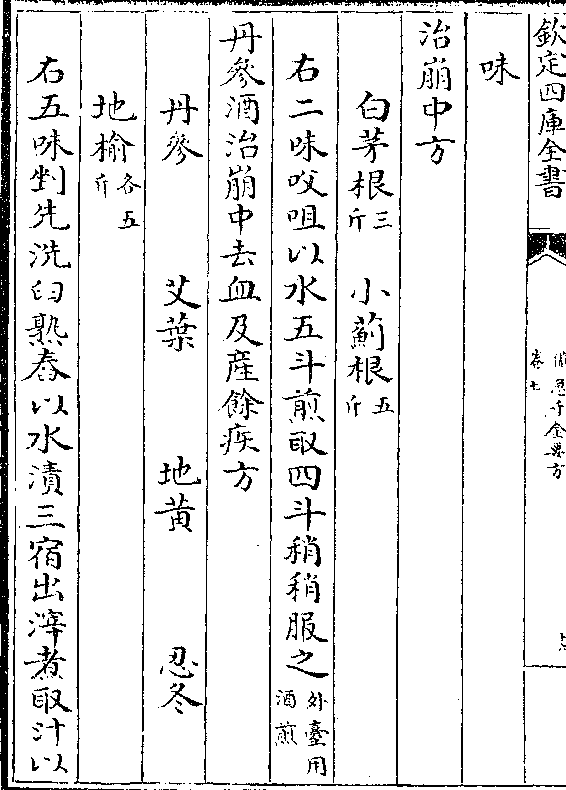 欽定四庫全書
備急千金要方
卷七
味
治崩中方
白茅根三斤 小薊根五斤
右二味㕮咀以水五斗煎取四斗稍稍服之外臺用酒煎
丹參酒治崩中去血及産餘疾方
丹參 艾葉 地黄 忍冬
地榆各五斤
右五味剉先洗臼熟舂以水漬三宿出滓煮取汁以